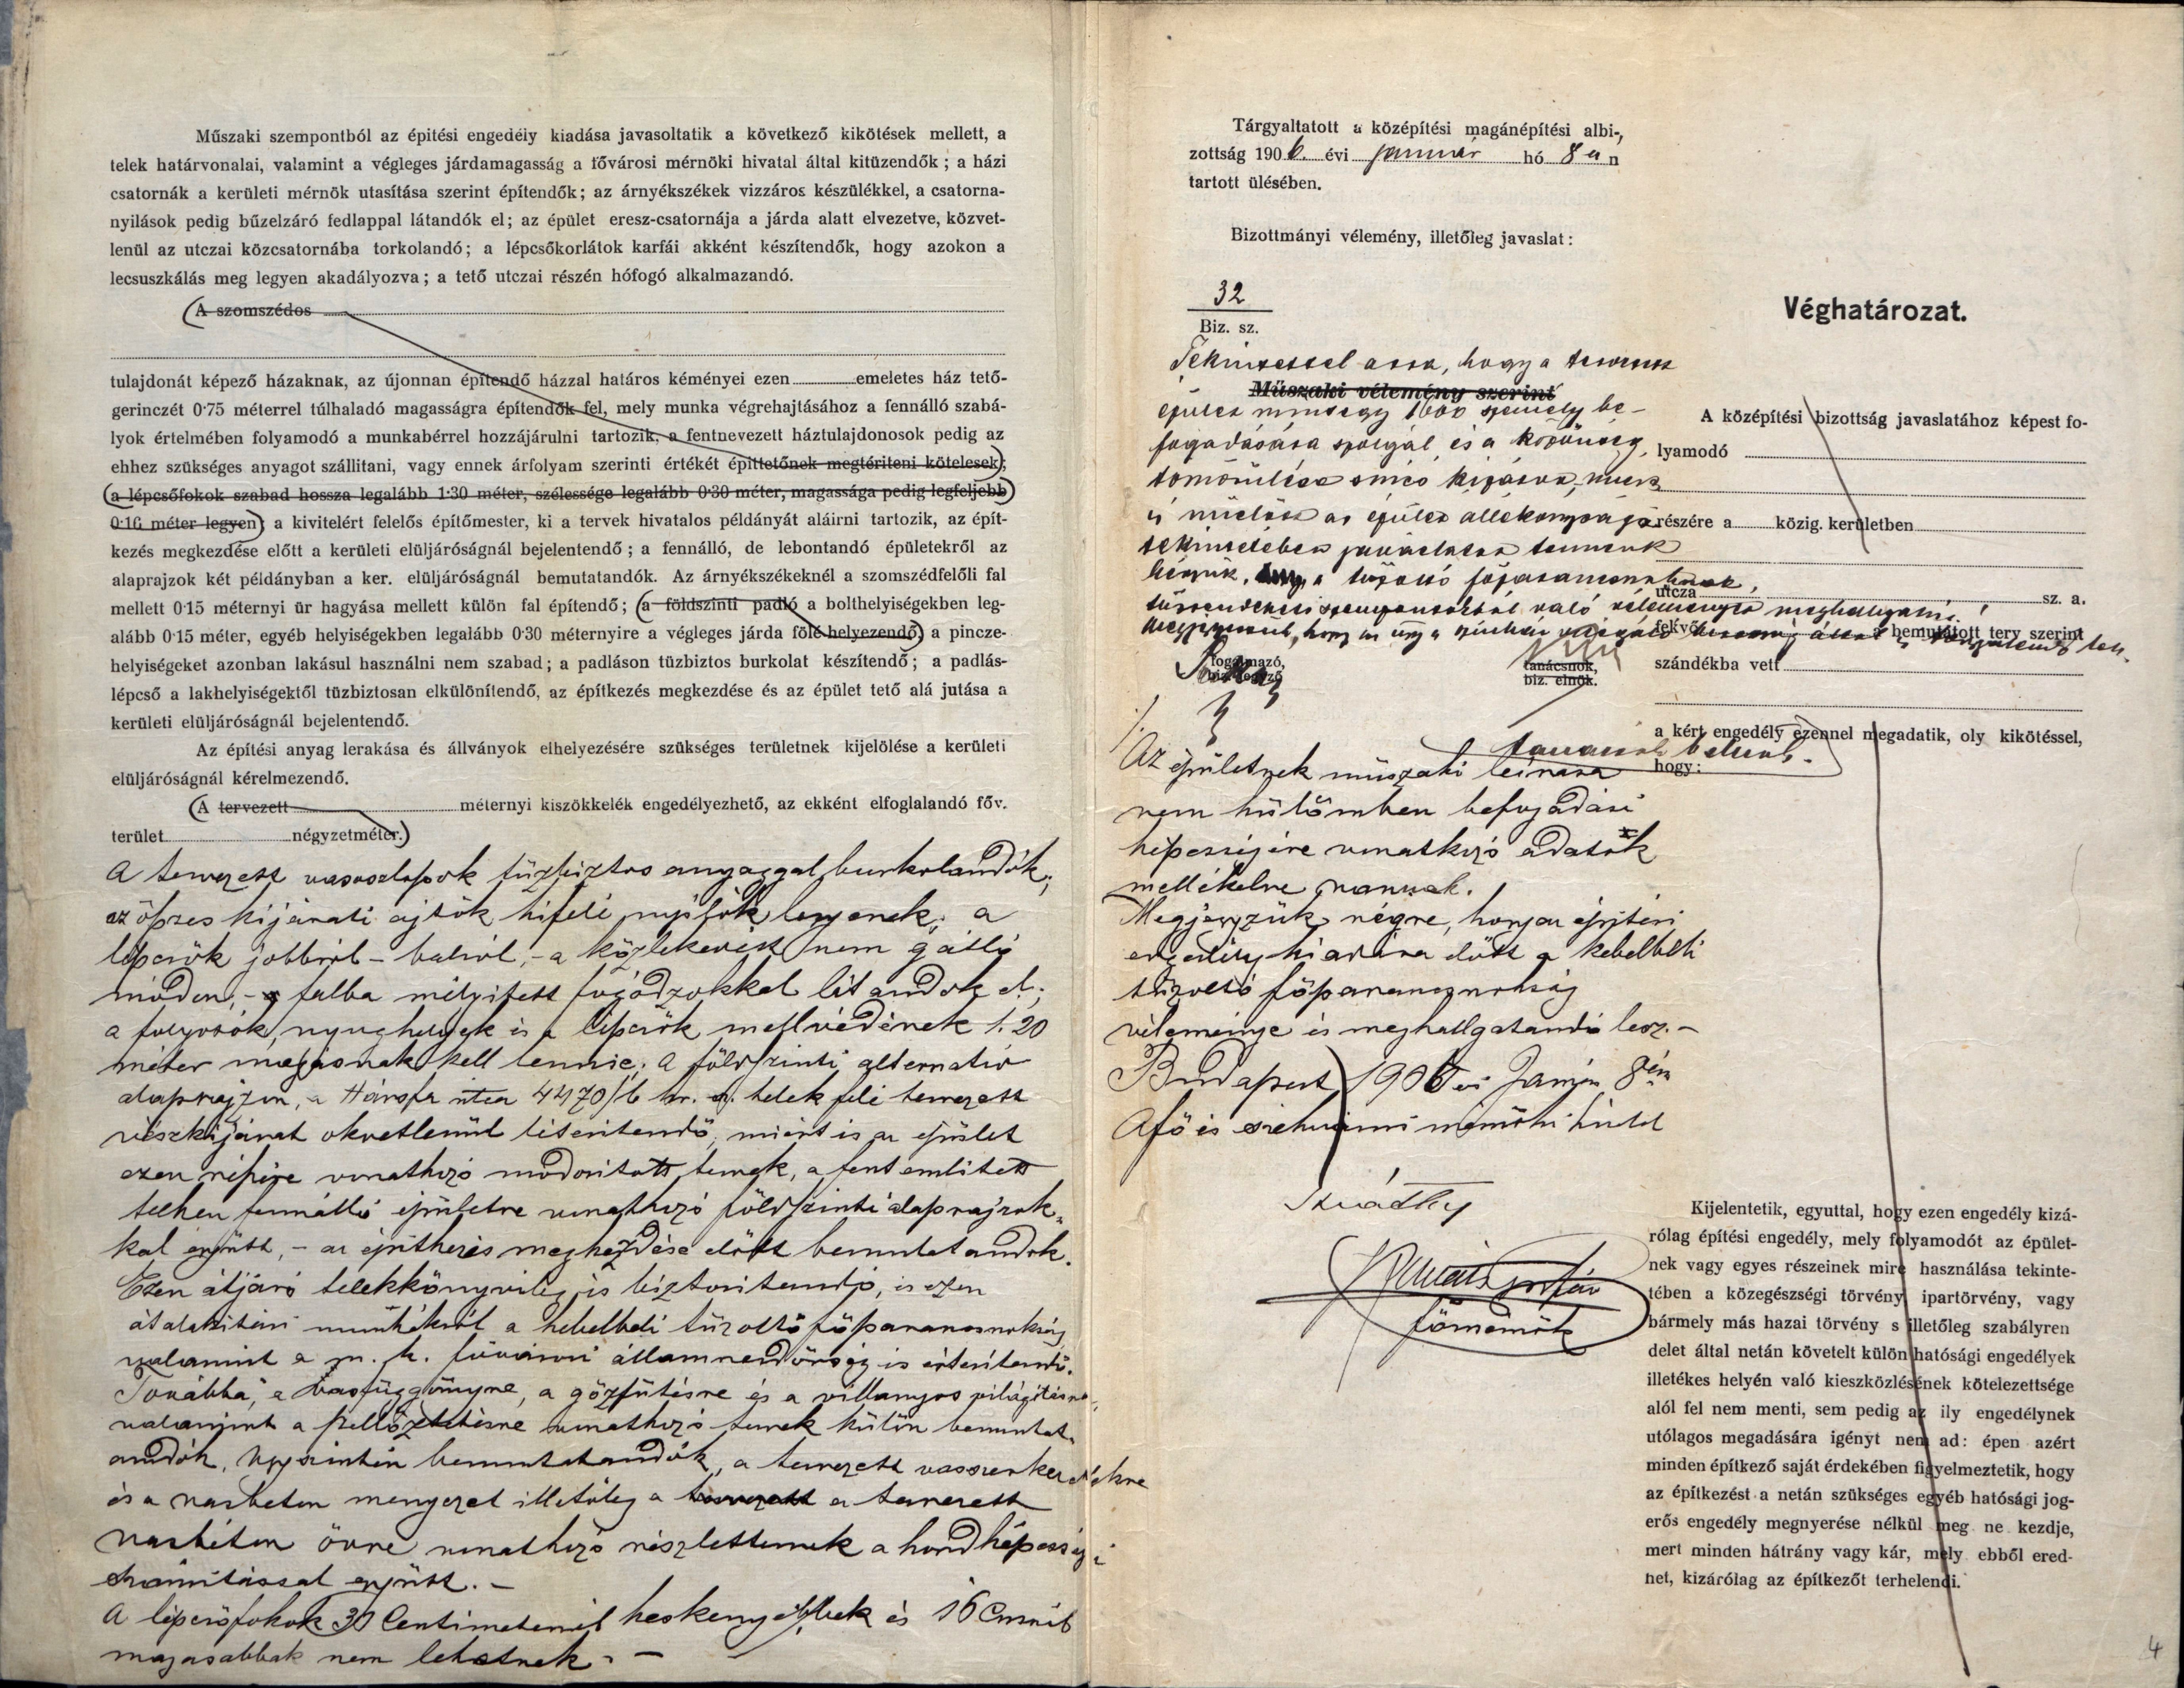 Műszaki szempontból az épitési engedély kiadása javasoltatik a következő kikötések mellett, a
telek határvonalai, valamint a végleges járdamagasság a fővárosi mérnöki hivatal által kitüzendők; a házi
csatornák a kerületi mérnök utasítása szerint építendők; az árnyékszékek vizzáros készülékkel, a csatorna-
nyilások pedig bűzelzáró fedlappal látandók el; az épület eresz-csatornája a járda alatt elvezetve, közvet-
lenül az utczai közcsatornába torkolandó; a lépcsőkorlátok karfái akként készítendők, hogy azokon a
lecsuszkálás meg legyen akadályozva; a tető utczai részén hófogó alkalmazandó.
(A szomszédos
tulajdonát képező házaknak, az újonnan építendő házzal határos kéményei ezen emeletes ház tető-
gerinczét 0·75 méterrel túlhaladó magasságra építendők fel, mely munka végrehajtásához a fennálló szabá-
lyok értelmében folyamodó a munkabérrel hozzájárulni tartozik, a fentnevezett háztulajdonosok pedig az
ehhez szükséges anyagot szállitani, vagy ennek árfolyam szerinti értékét építtetőnek megtériteni kötelesek);
(a lépcsőfokok szabad hossza legalább 1·30 méter, szélessége legalább 0·30 méter, magassága pedig legfeljebb)
0·16 méter legyen); a kivitelért felelős építőmester, ki a tervek hivatalos példányát aláirni tartozik, az épít-
kezés megkezdése előtt a kerületi elüljáróságnál bejelentendő; a fennálló, de lebontandó épületekről az
alaprajzok két példányban a ker. elüljáróságnál bemutatandók. Az árnyékszékeknél a szomszédfelőli fal
mellett 0·15 méternyi ür hagyása mellett külön fal építendő; (a földszinti padló a bolthelyiségekben leg-
alább 0·15 méter, egyéb helyiségekben legalább 0·30 méternyire a végleges járda fölé helyezendő) a pincze-
helyiségeket azonban lakásul használni nem szabad; a padláson tüzbiztos burkolat készítendő; a padlás-
lépcső a lakhelyiségektől tüzbiztosan elkülönítendő, az építkezés megkezdése és az épület tető alá jutása a
kerületi elüljáróságnál bejelentendő.
Az építési anyag lerakása és állványok elhelyezésére szükséges területnek kijelölése a kerületi
elüljáróságnál kérelmezendő.
(A tervezett méternyi kiszökkelék engedélyezhető, az ekként elfoglalandó főv.
terület négyzetméter.)
A tervezett vasoszlopok tüzbiztos anyaggal burkolandók;
az összes kijárati ajtók kifelé nyilók legyenek; a
lépcsők jobbról-balról, - a közlekedést nem gátló
módon, - a falba mélyitett fogódzokkal látandók el;
a folyosók, nyughelyek és a lépcsők mellvédének 1.20
méter magasnak kell lennie; A földszinti alternativ
alaprajzon, a Hársfa utca 4470/b hr. sz. telek felé tervezett
vészkijárat okvetlenül létesitendő, miért is az épület
ezen részére vonatkozó módositott tervek, a fent emlitett
telken fennálló épületre vonatkozó földszinti alaprajzok-
kal együtt, - az épitkezés megkezdése előtt bemutatandók.
Ezen átjáró telekkönyvileg is biztositandó, és ezen
átalakitási munkákról a kebelbeli tüzoltó főparancsnokság
valamint a m. k. fővárosi államrendőrség is értesitendő.
Továbbá, a vasfüggönyre, a gőzfűtésre és a villanyos világitásra,
valamint a szellőztetésre vonatkozó tervek külön bemutat-
andók. Ugyszintén bemutatandók, a tervezett vasszerkezetekre
és a vasbeton menyezet illetőleg a tervezett a tervezett
vasbeton övre vonatkozó részlettervek a hordképességi
számitással együtt. -
A lépcsőfokok 30 Centimeternél keskenyebbek és 16 Cmnél
magasabbak nem lehetnek. -
Tárgyaltatott a középítési magánépítési albi-,
zottság 1906. évi január hó 8 án
tartott ülésében.
Bizottmányi vélemény, illetőleg javaslat:
32
Biz. sz.
Tekintettel arra, hogy a tervezett
Műszaki vélemény szerint
épület mintegy 1600 személy be-
fogadására szolgál, és a közönség
tömörülése
és mielőtt az épület állékonysága
tekintetében javaslatot tennénk
kérjük, a tüzoltó főparancsnoknak
tűzrendészeti szempontból való véleményét meghallgatni.
fogalmazó,
biz. jegyző
tanácsnok,
biz. elnök.
Az épületnek müszaki leirása
nem külömben befogadási
képességére vonatkozó adatok
mellékelve vannak.
Megjegyzük végre, hogy az épitési
engedély kiadása előtt a kebelbeli
tüzoltó főparancsnokság
véleménye is meghallgatandó lesz. -
Budapest, 1906 évi Január 8 án
A fő és székvárosi mérnöki hivatal
főmérnök
Véghatározat.
A középítési bizottság javaslatához képest fo-
lyamodó
részére a közig. kerületben
utcza sz. a.
fekvő a bemutatott terv szerint
szándékba vett
a kért engedély ezennel megadatik, oly kikötéssel,
hogy:
Kijelentetik, egyuttal, hogy ezen engedély kizá-
rólag építési engedély, mely folyamodót az épület-
nek vagy egyes részeinek mire használása tekinte-
tében a közegészségi törvény ipartörvény, vagy
bármely más hazai törvény s illetőleg szabályren
delet által netán követelt külön hatósági engedélyek
illetékes helyén való kieszközlésének kötelezettsége
alól fel nem menti, sem pedig az ily engedélynek
utólagos megadására igényt nem ad: épen azért
minden építkező saját érdekében figyelmeztetik, hogy
az építkezést a netán szükséges egyéb hatósági jog-
erős engedély megnyerése nélkül meg ne kezdje,
mert minden hátrány vagy kár, mely ebből ered-
het, kizárólag az építkezőt terhelendi.
4